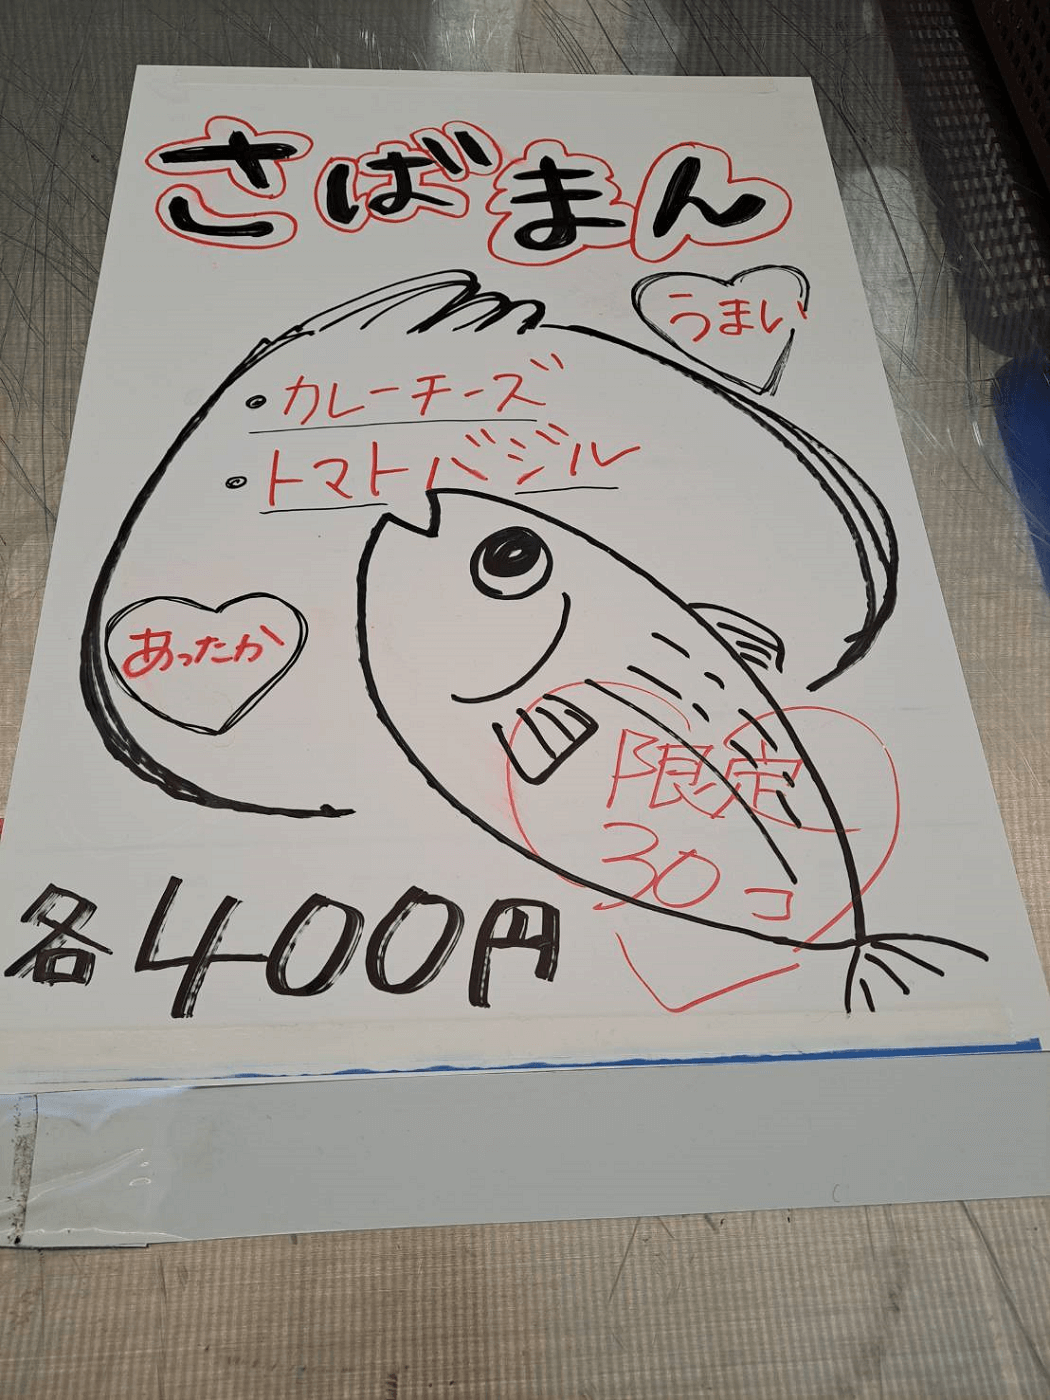 さばまん
うまい
・カレーチーズ
・トマトバジル
あったか
限定
30コ
各400円